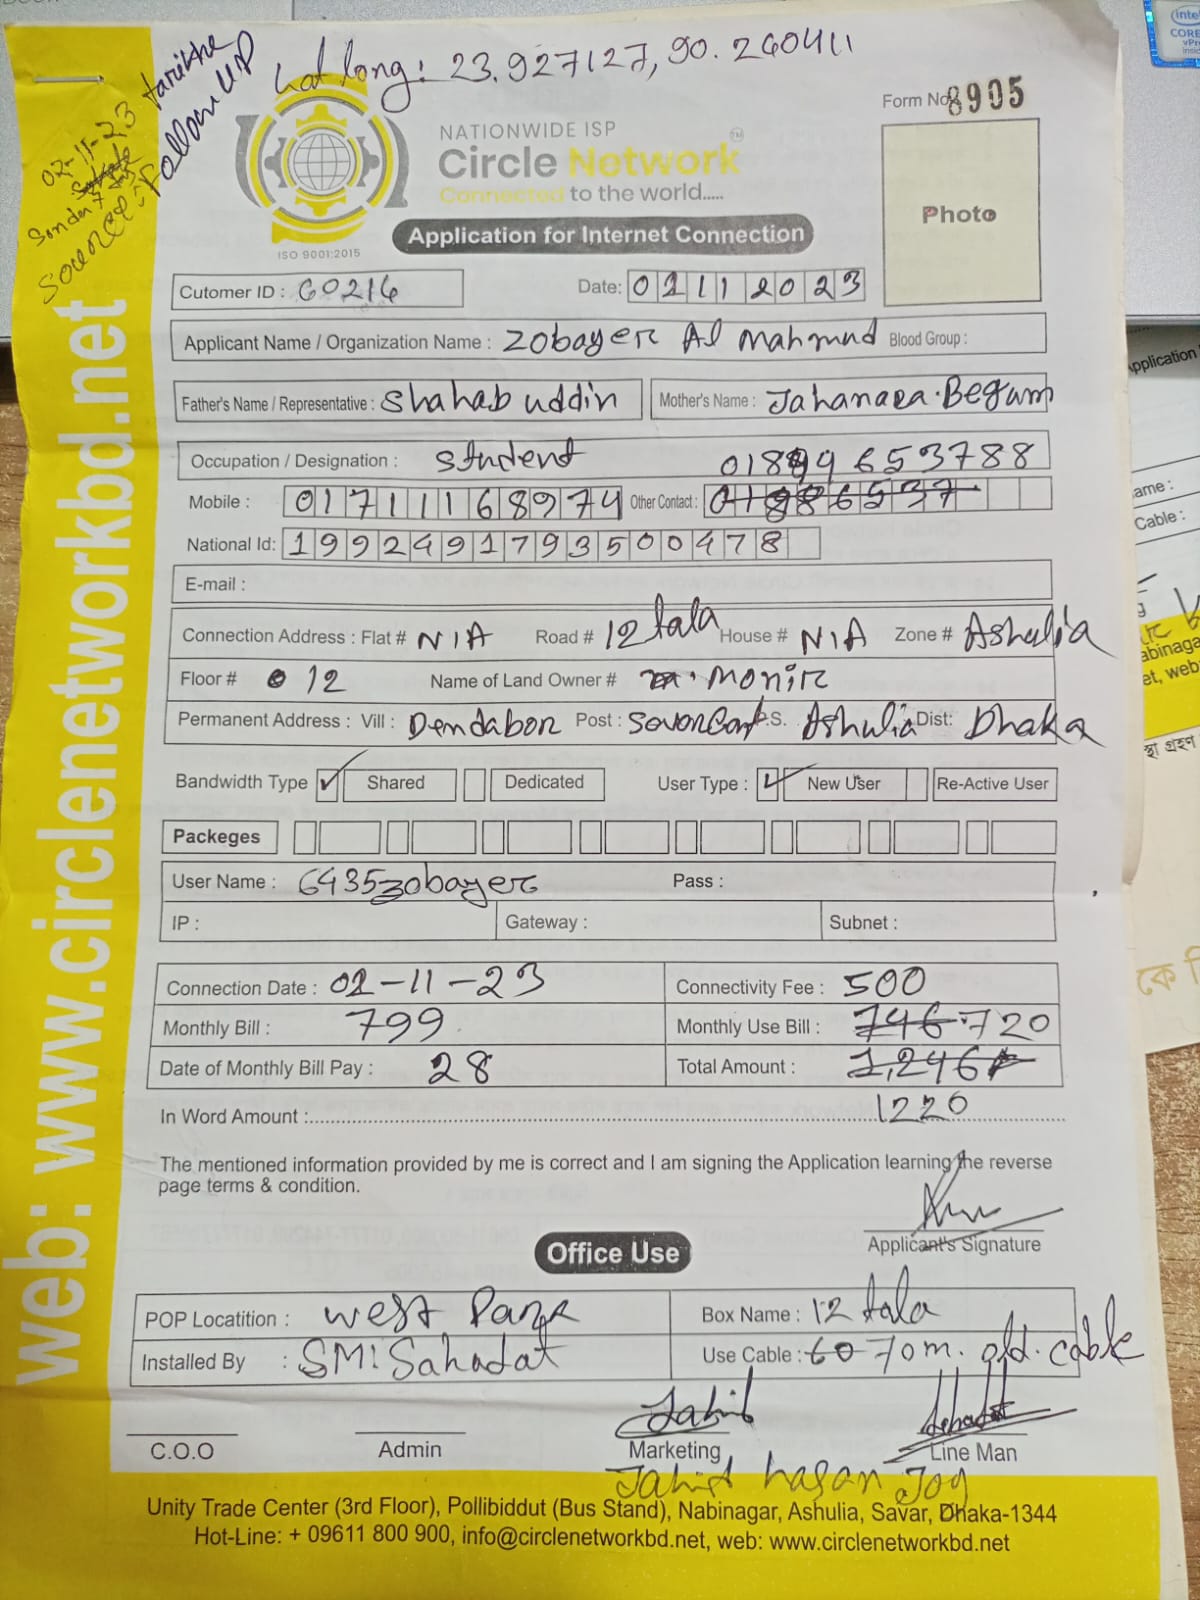 Lat long: 23.927127, 90.260411
02-11-23 tarikhe
Follow up
Source:
Form No 8905
NATIONWIDE ISP
Circle Network™
Connected to the world.....
ISO 9001:2015
Photo
Application for Internet Connection
Cutomer ID : 60216
Date: 02112023
Applicant Name / Organization Name : Zobayer Al Mahmud Blood Group :
Father's Name / Representative : Shahab uddin Mother's Name : Jahanara Begum
Occupation / Designation : Student
Mobile : 01711168974 Other Contact :
National Id: 1992491793500478
E-mail :
Connection Address : Flat # N/A Road # 12 tala House # N/A Zone # Ashulia
Floor # 12 Name of Land Owner # Monir
Permanent Address : Vill : Dendabor Post : P.S. Ashulia Dist: Dhaka
Bandwidth Type ✓ Shared Dedicated User Type : ✓ New User Re-Active User
Packeges
User Name : 6435zobayer Pass :
IP : Gateway : Subnet :
Connection Date : 02-11-23 Connectivity Fee : 500
Monthly Bill : 799 Monthly Use Bill : 746 720
Date of Monthly Bill Pay : 28 Total Amount : 1,246
1220
In Word Amount :
The mentioned information provided by me is correct and I am signing the Application learning the reverse
page terms & condition.
Applicant's Signature
Office Use
POP Locatition : West Para Box Name : 12 tala
Installed By : SM: Sahadat Use Cable : 60 70m. old. cable
C.O.O Admin Marketing Line Man
hasan Joy
Unity Trade Center (3rd Floor), Pollibiddut (Bus Stand), Nabinagar, Ashulia, Savar, Dhaka-1344
Hot-Line: + 09611 800 900, info@circlenetworkbd.net, web: www.circlenetworkbd.net
web: www.circlenetworkbd.net